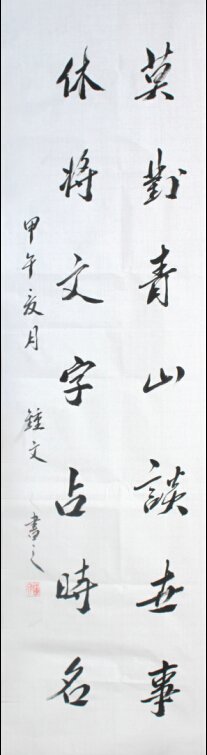 莫對青山談世事
休將文字占時名
甲午夏月 鍾文書之